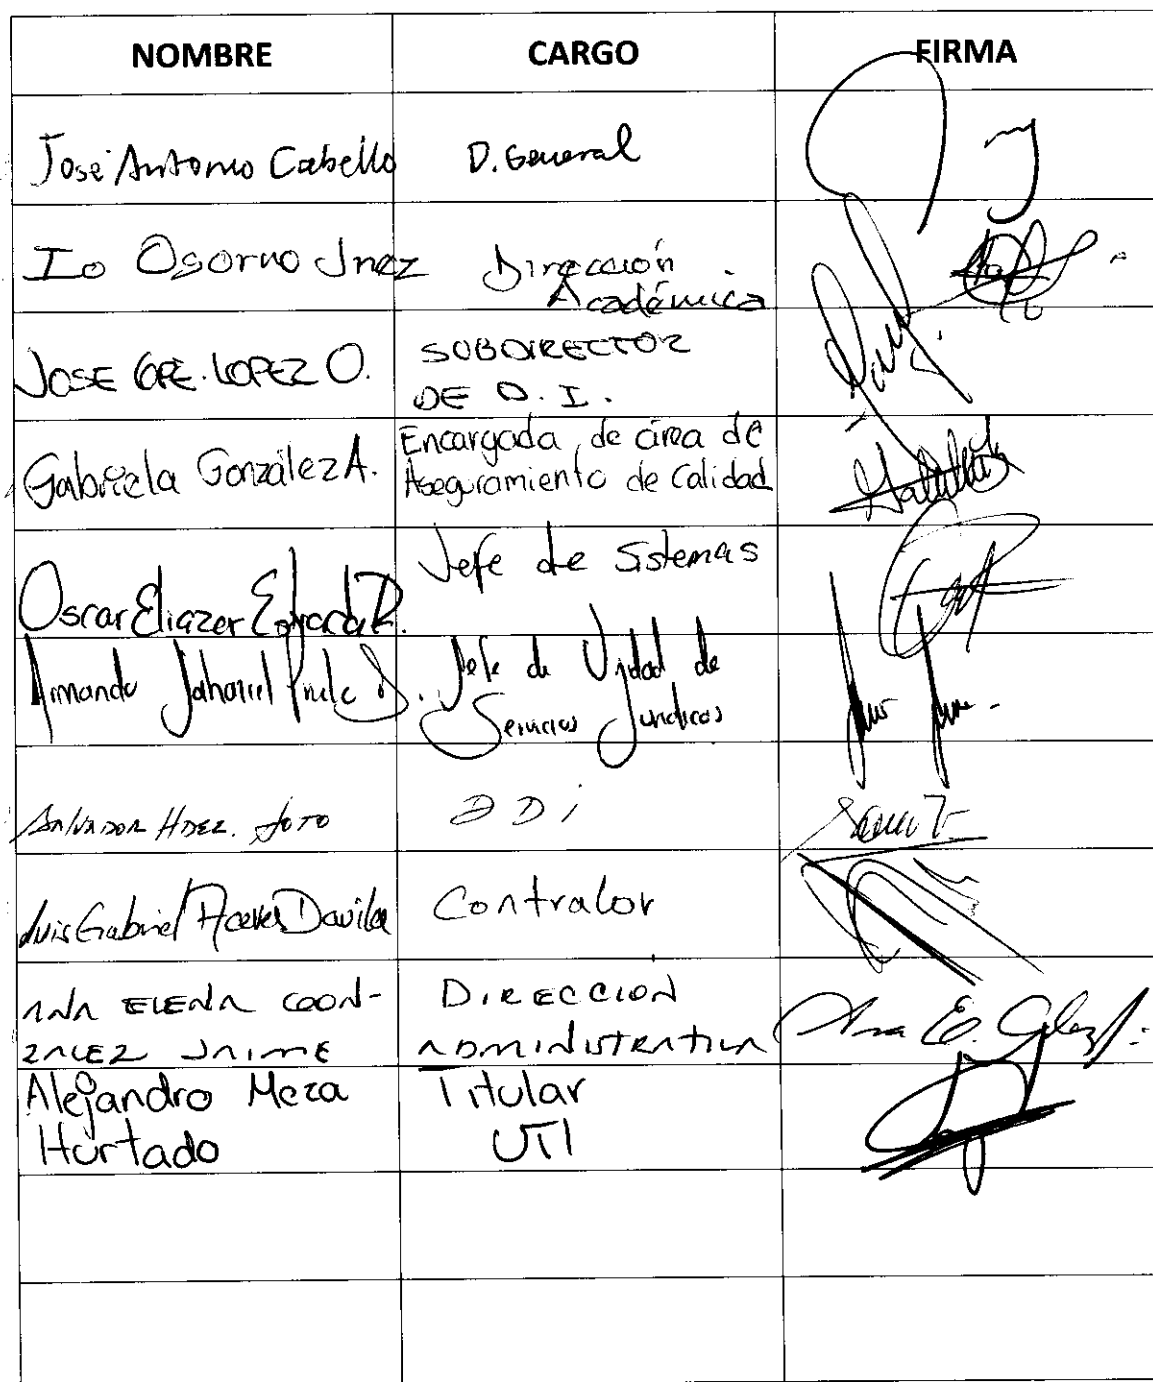 NOMBRE CARGO FIRMA
José Antonio Cabello D. General
Io Osorno Jnez Dirección
Académica
JOSE GPE. LOPEZ O. SUBDIRECTOR
DE D. I.
Gabriela González A. Encargada de área de
Aseguramiento de Calidad
Jefe de Sistemas
Oscar Eliazer
Armando Jahaziel Jefe de Unidad de
Servicios Jurídicos
SALVADOR HDEZ. SOTO DDi
Luis Gabriel Aceves Davila Contralor
ANA ELENA GON- DIRECCION
ZALEZ JAIME ADMINISTRATIVA Ana E. Glez J.
Alejandro Meza Titular
Hurtado UTI